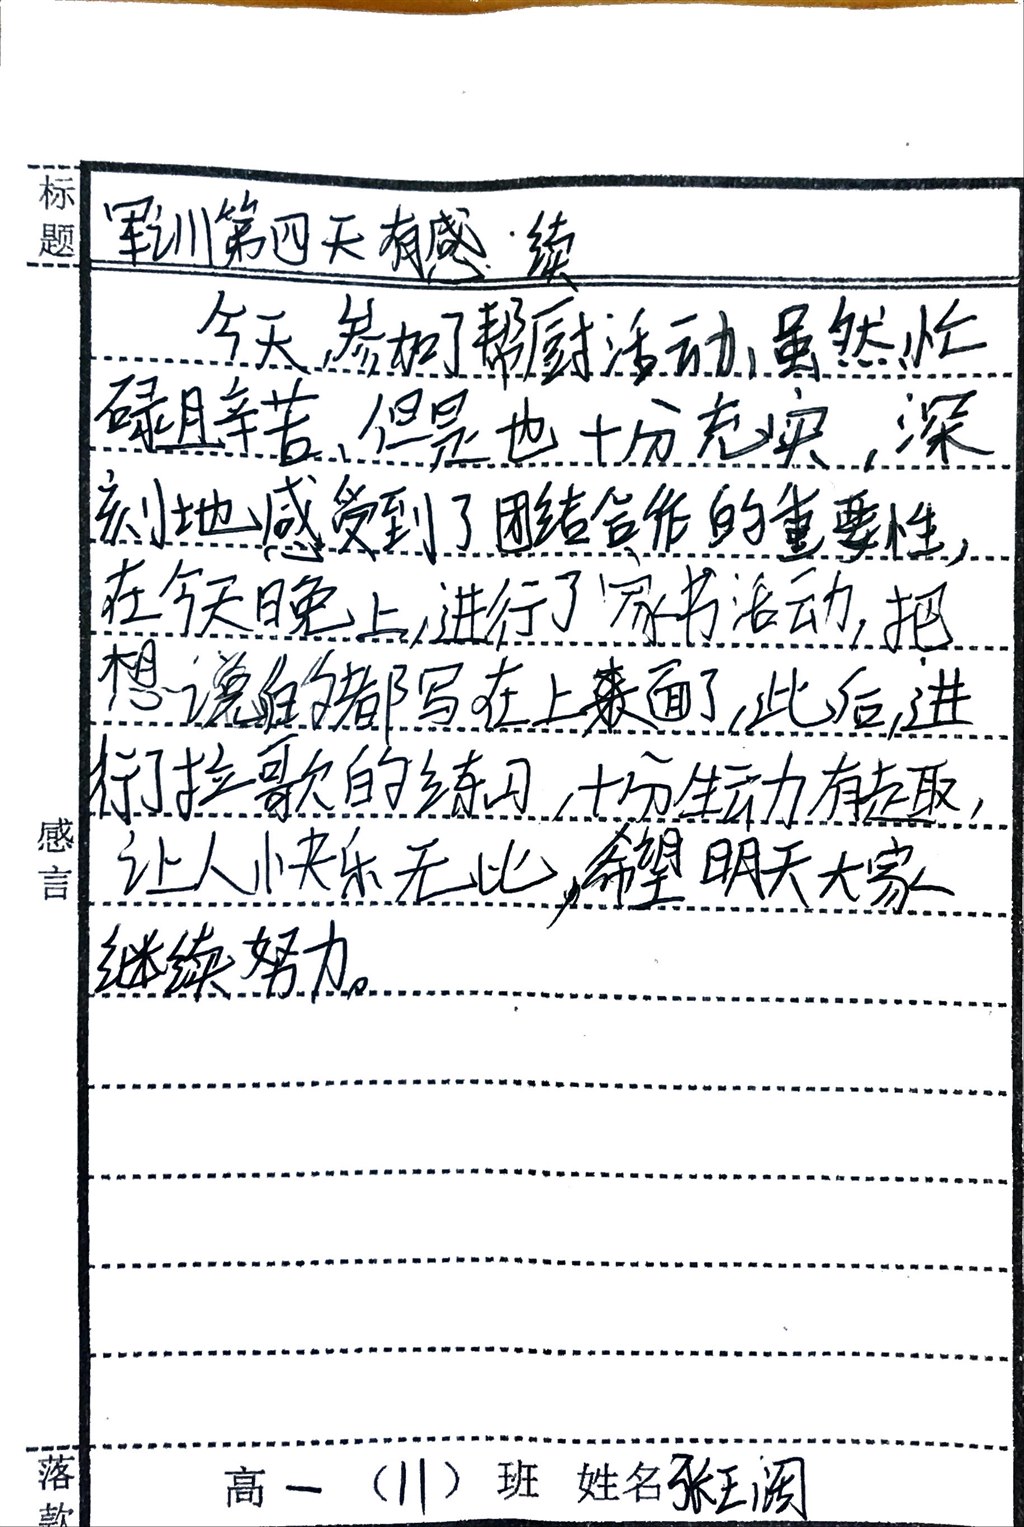 标题
军训第四天有感·续
今天,参加了帮厨活动,虽然忙
碌且辛苦,但是也十分充实,深
刻地感受到了团结合作的重要性,
在今天晚上,进行了家书活动,把
想说的都写在上面了,此后,进
行了拉歌的练习,十分生动有趣,
让人快乐无比,希望明天大家
继续努力。
感言
落款
高一(11)班 姓名张王润